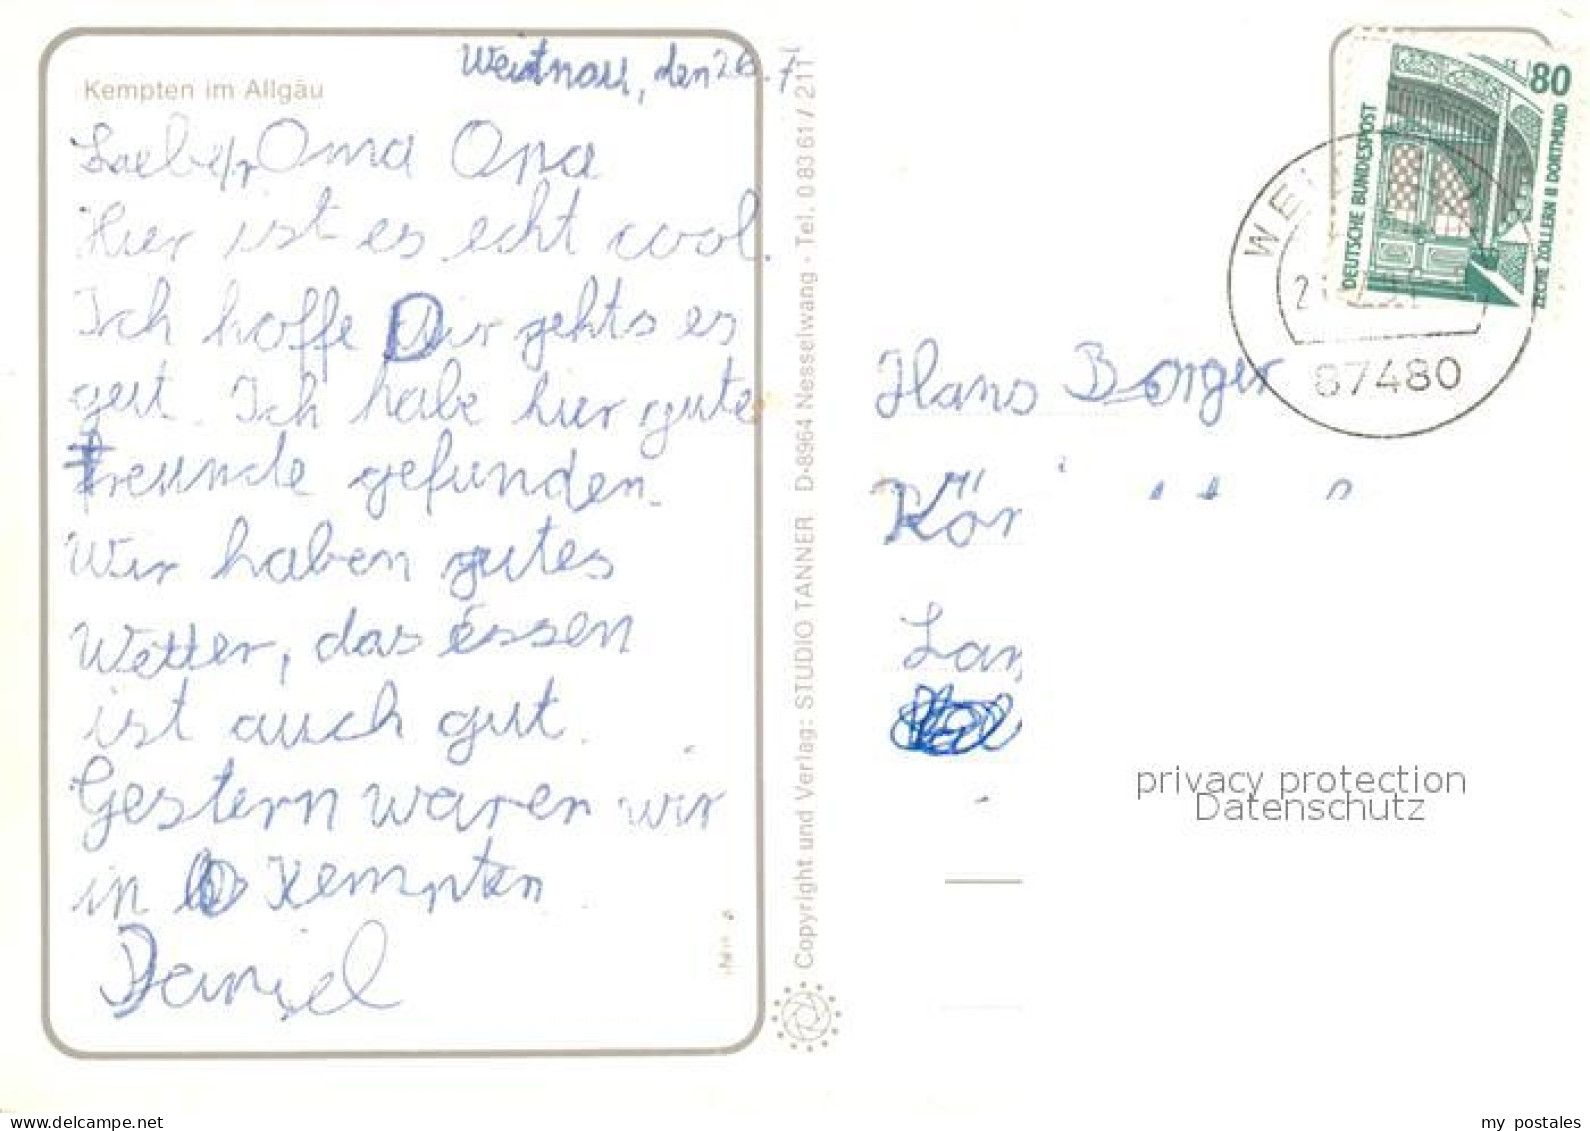 Weitnau, den 26.7
Kempten im Allgäu
Lieber Oma Opa
Hier ist es echt cool.
Ich hoffe Dir gehts es
gut. Ich habe hier gute
Freunde gefunden.
Wir haben gutes
Wetter, das essen
ist auch gut.
Gestern waren wir
in Kempten.
Daniel
Copyright und Verlag: STUDIO TANNER D-8964 Nesselwang - Tel. 0 83 61 / 211
80
DEUTSCHE BUNDESPOST
ZECHE ZOLLERN II DORTMUND
WEI
2
87480
Hans Borger
Kör
Lan
privacy protection
Datenschutz
www.delcampe.net
my_postales